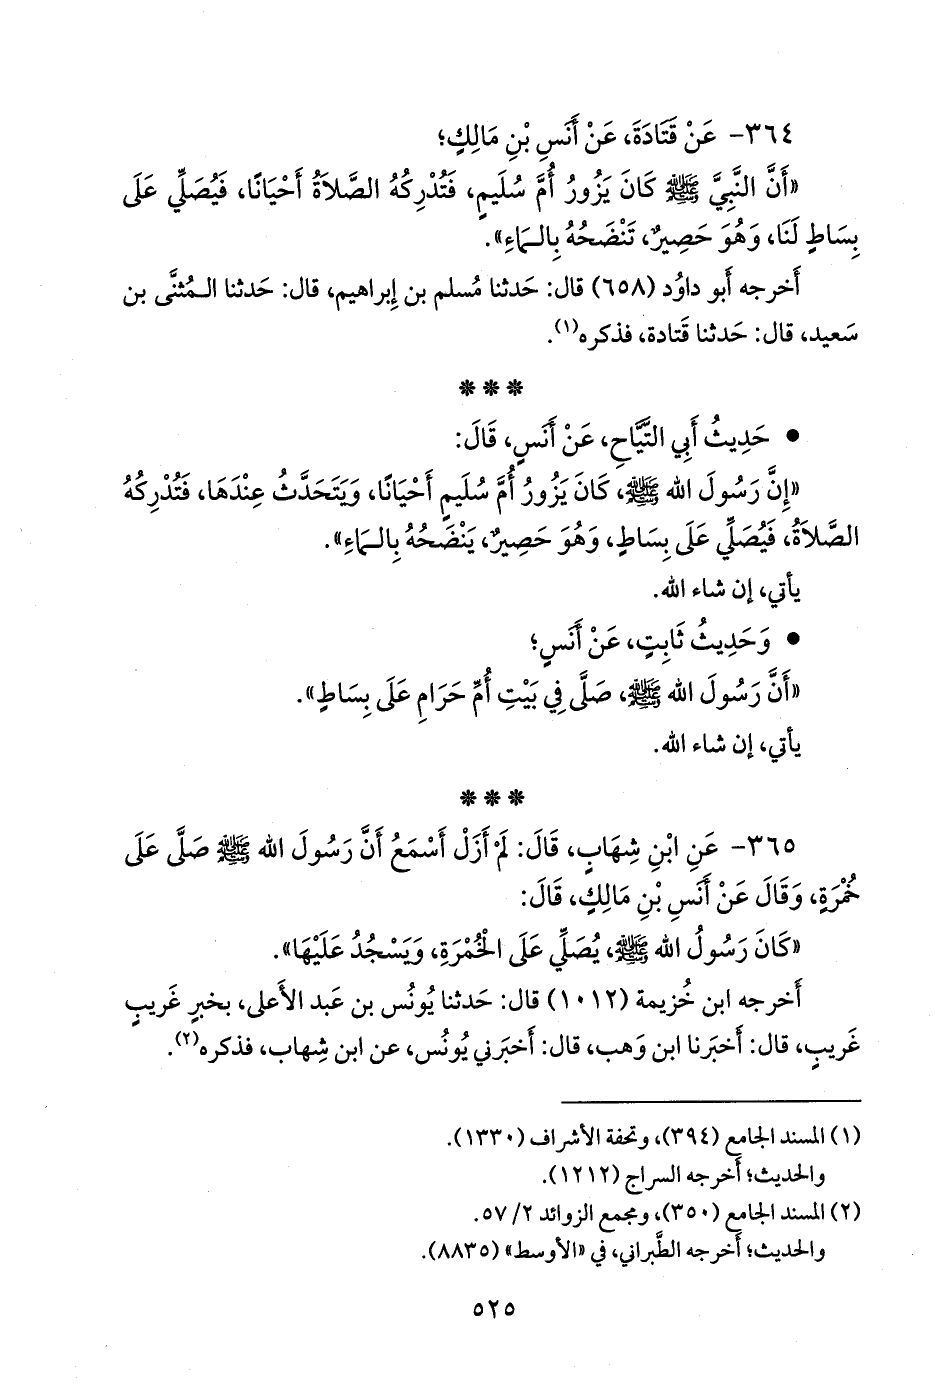 ٣٦٤- عَنْ قَتَادَةَ، عَنْ أَنَسِ بْنِ مَالِكٍ؛
«أَنَّ النَّبِيَّ ﷺ كَانَ يَزُورُ أُمَّ سُلَيمٍ، فَتُدْرِكُهُ الصَّلاَةُ أَحْيَانًا، فَيُصَلِّي عَلَى
بِسَاطٍ لَنَا، وَهُوَ حَصِيرٌ، تَنْضَحُهُ بِالمَاءِ».
أَخرجه أَبو داوُد (٦٥٨) قال: حَدثنا مُسلم بن إِبراهيم، قال: حَدثنا المُثنَّى بن
سَعيد، قال: حَدثنا قَتادة، فذكره(١).
***
• حَدِيثُ أَبِي التَّيَّاحِ، عَنْ أَنَسٍ، قَالَ:
«إِنَّ رَسُولَ الله ﷺ، كَانَ يَزُورُ أُمَّ سُلَيمٍ أَحْيَانًا، وَيَتَحَدَّثُ عِنْدَهَا، فَتُدْرِكُهُ
الصَّلاَةُ، فَيُصَلِّي عَلَى بِسَاطٍ، وَهُوَ حَصِيرٌ، يَنْضَحُهُ بِالمَاءِ».
يأتي، إن شاء الله.
• وَحَدِيثُ ثَابِتٍ، عَنْ أَنَسٍ؛
«أَنَّ رَسُولَ الله ﷺ، صَلَّى فِي بَيْتِ أُمِّ حَرَامِ عَلَى بِسَاطٍ».
يأتي، إن شاء الله.
***
٣٦٥- عَنِ ابْنِ شِهَابٍ، قَالَ: لَمْ أَزَلْ أَسْمَعُ أَنَّ رَسُولَ الله ﷺ صَلَّى عَلَى
خُمْرَةٍ، وَقَالَ عَنْ أَنَسِ بْنِ مَالِكٍ، قَالَ:
«كَانَ رَسُولُ الله ﷺ، يُصَلِّي عَلَى الْخُمْرَةِ، وَيَسْجُدُ عَلَيْهَا».
أَخرجه ابن خُزيمة (١٠١٢) قال: حَدثنا يُونُس بن عَبد الأَعلى، بخبرٍ غَريبٍ
غَريبٍ، قال: أَخبَرنا ابن وَهب، قال: أَخبَرني يُونُس، عن ابن شِهاب، فذكره(٢).
(١) المسند الجامع (٣٩٤)، وتحفة الأشراف (١٣٣٠).
والحديث؛ أَخرجه السراج (١٢١٢).
(٢) المسند الجامع (٣٥٠)، ومجمع الزوائد ٢/ ٥٧.
والحديث؛ أَخرجه الطَّبراني، في «الأوسط» (٨٨٣٥).
٥٢٥